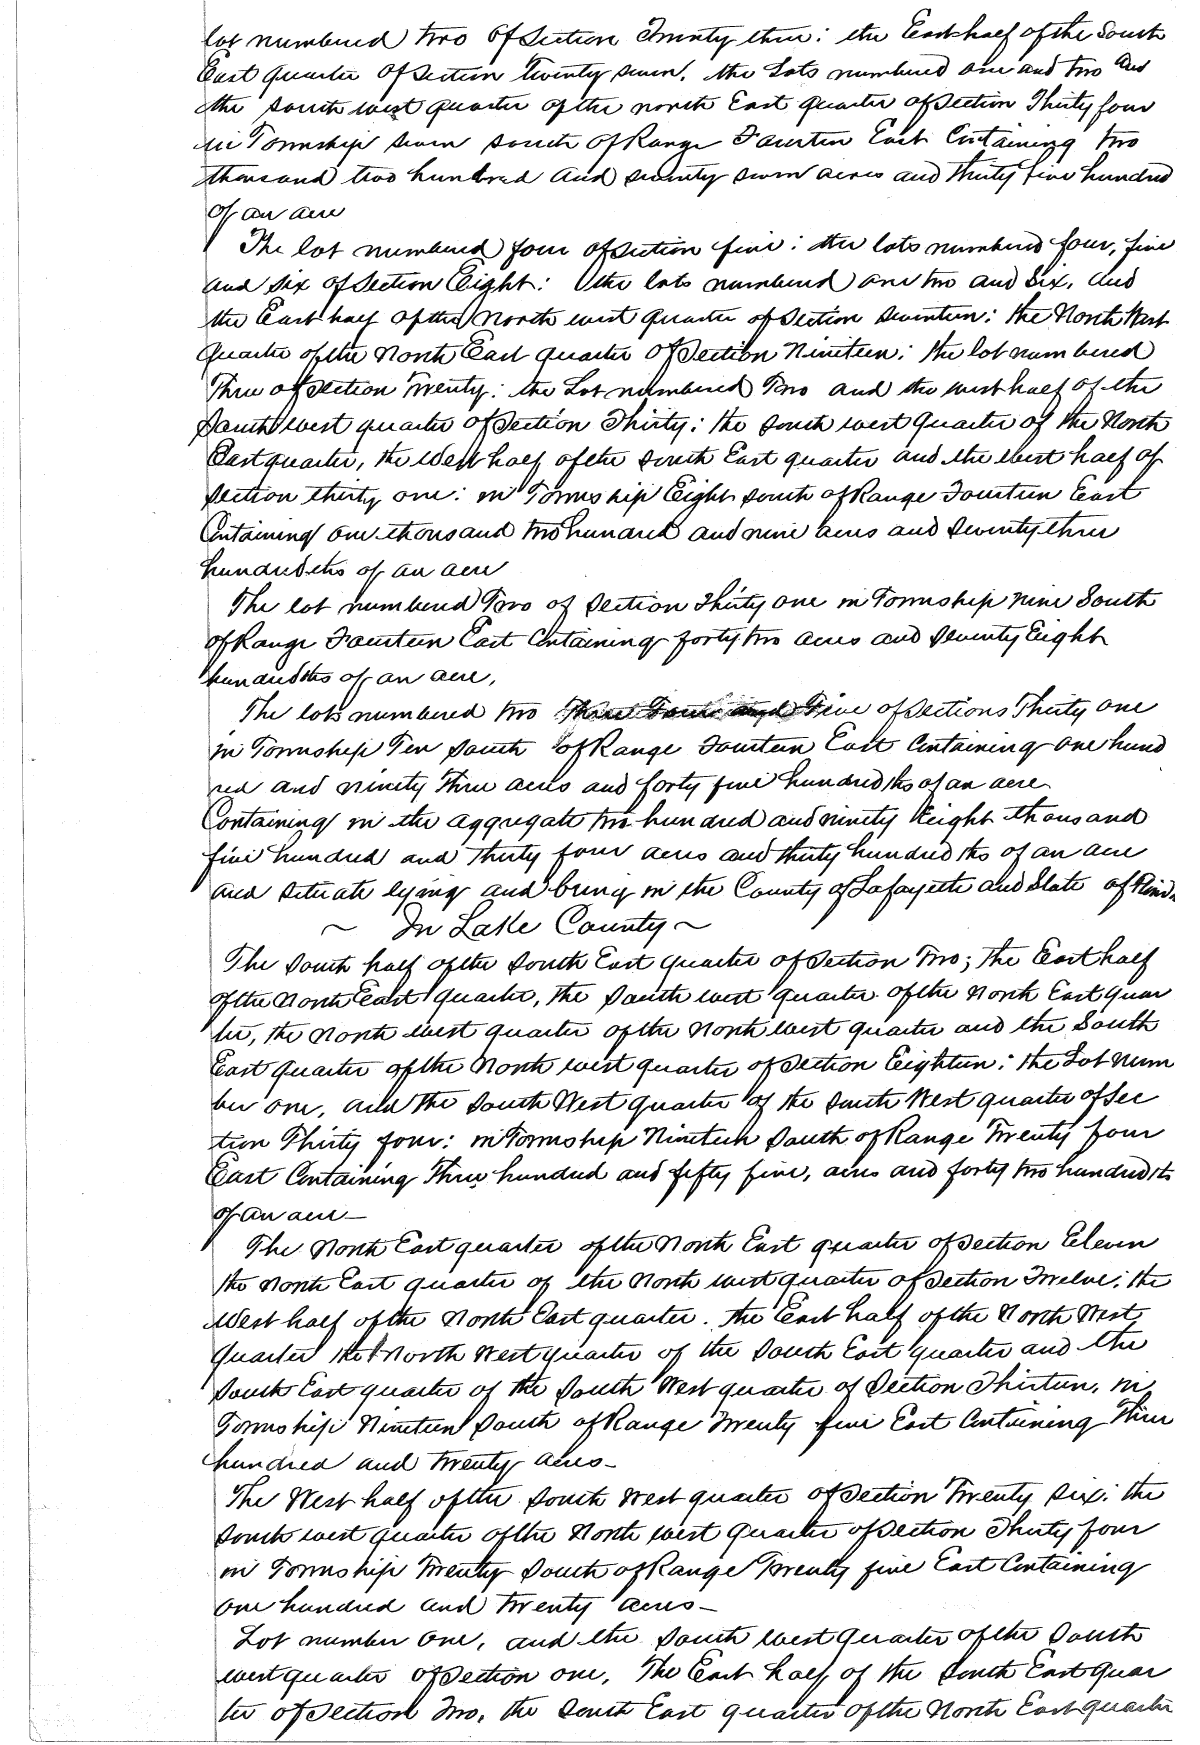 lot numbered two of Section Twenty three: the East half of the South
East quarter of Section Twenty seven, the Lots numbered one and two and
the south west quarter of the north East quarter of Section Thirty four
in Township seven south of Range Fourteen East Containing two
thousand two hundred and seventy seven acres and thirty five hundred
of an acre
The lot numbered four of Section five: the lots numbered four, five
and six of Section Eight: the lots numbered one two and Six, and
the East half of the North west quarter of Section seventeen: the North West
quarter of the North East quarter of Section Nineteen: the lot numbered
Three of Section Twenty: the Lot numbered Two and the west half of the
South west quarter of Section Thirty; the south west quarter of the North
East quarter, the West half of the south East quarter and the West half of
Section thirty one: in Township Eight south of Range Fourteen East
Containing one thousand two hundred and nine acres and seventy three
hundredths of an acre
The lot numbered Two of Section Thirty one in Township nine South
of Range Fourteen East Containing forty two acres and seventy Eight
hundredths of an acre,
The lots numbered two Three Four and Five of Sections Thirty one
in Township Ten south of Range Fourteen East Containing one hund
red and ninety three acres and forty five hundredths of an acre
Containing in the aggregate two hundred and ninety Eight thousand
five hundred and thirty four acres and thirty hundredths of an acre
and situate lying and being in the County of Lafayette and State of
~ In Lake County ~
The South half of the South East quarter of Section Two; the East half
of the North East quarter, the South west quarter of the North East quar
ter, the North west quarter of the North west quarter and the South
East quarter of the North west quarter of Section Eighteen: the Lot num
ber one, and the South West quarter of the South West quarter of Sec
tion Thirty four: in Township Nineteen South of Range Twenty four
East Containing Three hundred and fifty five, acres and forty two hundredths
of an acre—
The North East quarter of the North East quarter of Section Eleven
the North East quarter of the North west quarter of Section Twelve: the
West half of the North East quarter. the East half of the North West
quarter the North West quarter of the South East quarter and the
South East quarter of the South West quarter of Section Thirteen, in
Township Nineteen South of Range Twenty five East Containing Three
hundred and twenty acres—
The West half of the South West quarter of Section Twenty six: the
South west quarter of the North west quarter of Section Thirty four
in Township Twenty South of Range Twenty five East Containing
one hundred and twenty acres—
Lot number one, and the South west quarter of the South
west quarter of Section one, The East half of the South East quar
ter of Section Two, the South East quarter of the North East quarter